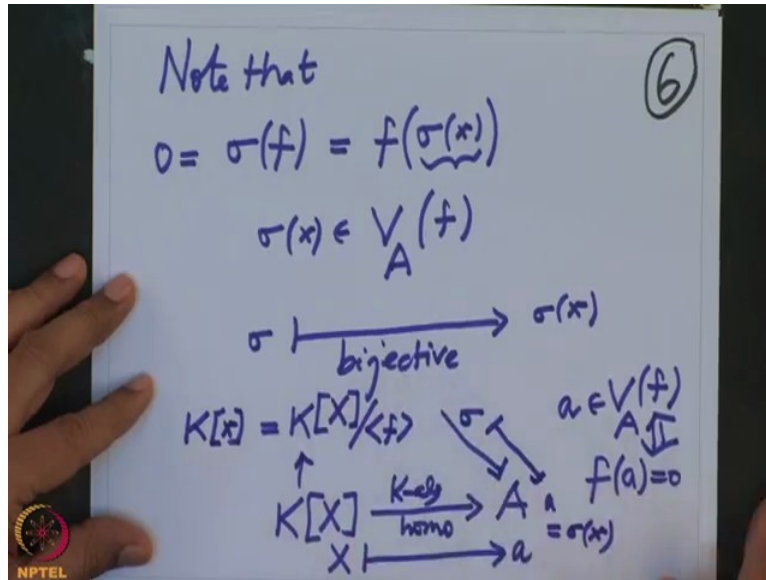 Note that
⑥
0 = σ(f) = f(σ(x))
σ(x) ∈ V_A(f)
σ ⟼ σ(x)
bijective
K[x] = K[X]/<f>
σ
a ∈ V_A(f)
⇕
f(a)=0
↑
K[X] → A
K-alg
homo
a
= σ(x)
X ⟼ a
NPTEL